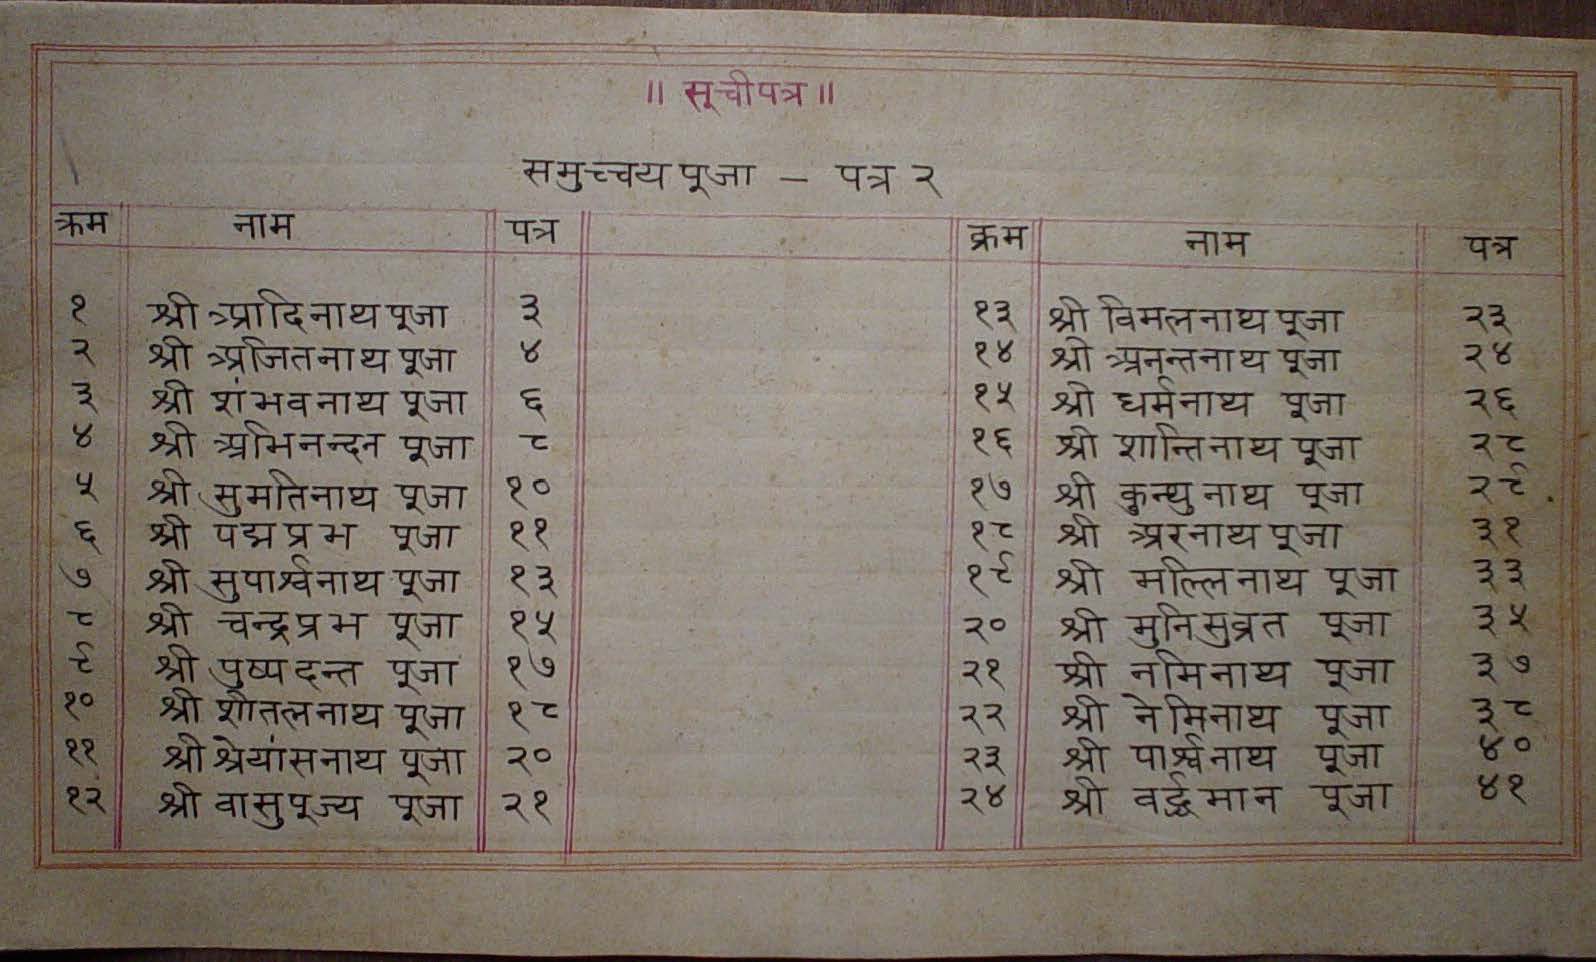 ॥ सूचीपत्र ॥
समुच्चय पूजा – पत्र २
क्रम नाम पत्र क्रम नाम पत्र
१ श्री आदिनाथ पूजा ३ १३ श्री विमलनाथ पूजा २३
२ श्री अजितनाथ पूजा ४ १४ श्री अनन्तनाथ पूजा २४
३ श्री शंभवनाथ पूजा ६ १५ श्री धर्मनाथ पूजा २६
४ श्री अभिनन्दन पूजा ८ १६ श्री शान्तिनाथ पूजा २८
५ श्री सुमतिनाथ पूजा १० १७ श्री कुन्थुनाथ पूजा २९
६ श्री पद्मप्रभ पूजा ११ १८ श्री अरनाथ पूजा ३१
७ श्री सुपार्श्वनाथ पूजा १३ १९ श्री मल्लिनाथ पूजा ३३
८ श्री चन्द्रप्रभ पूजा १५ २० श्री मुनिसुव्रत पूजा ३५
९ श्री पुष्पदन्त पूजा १७ २१ श्री नमिनाथ पूजा ३७
१० श्री शीतलनाथ पूजा १८ २२ श्री नेमिनाथ पूजा ३८
११ श्री श्रेयांसनाथ पूजा २० २३ श्री पार्श्वनाथ पूजा ४०
१२ श्री वासुपूज्य पूजा २१ २४ श्री वर्द्धमान पूजा ४१